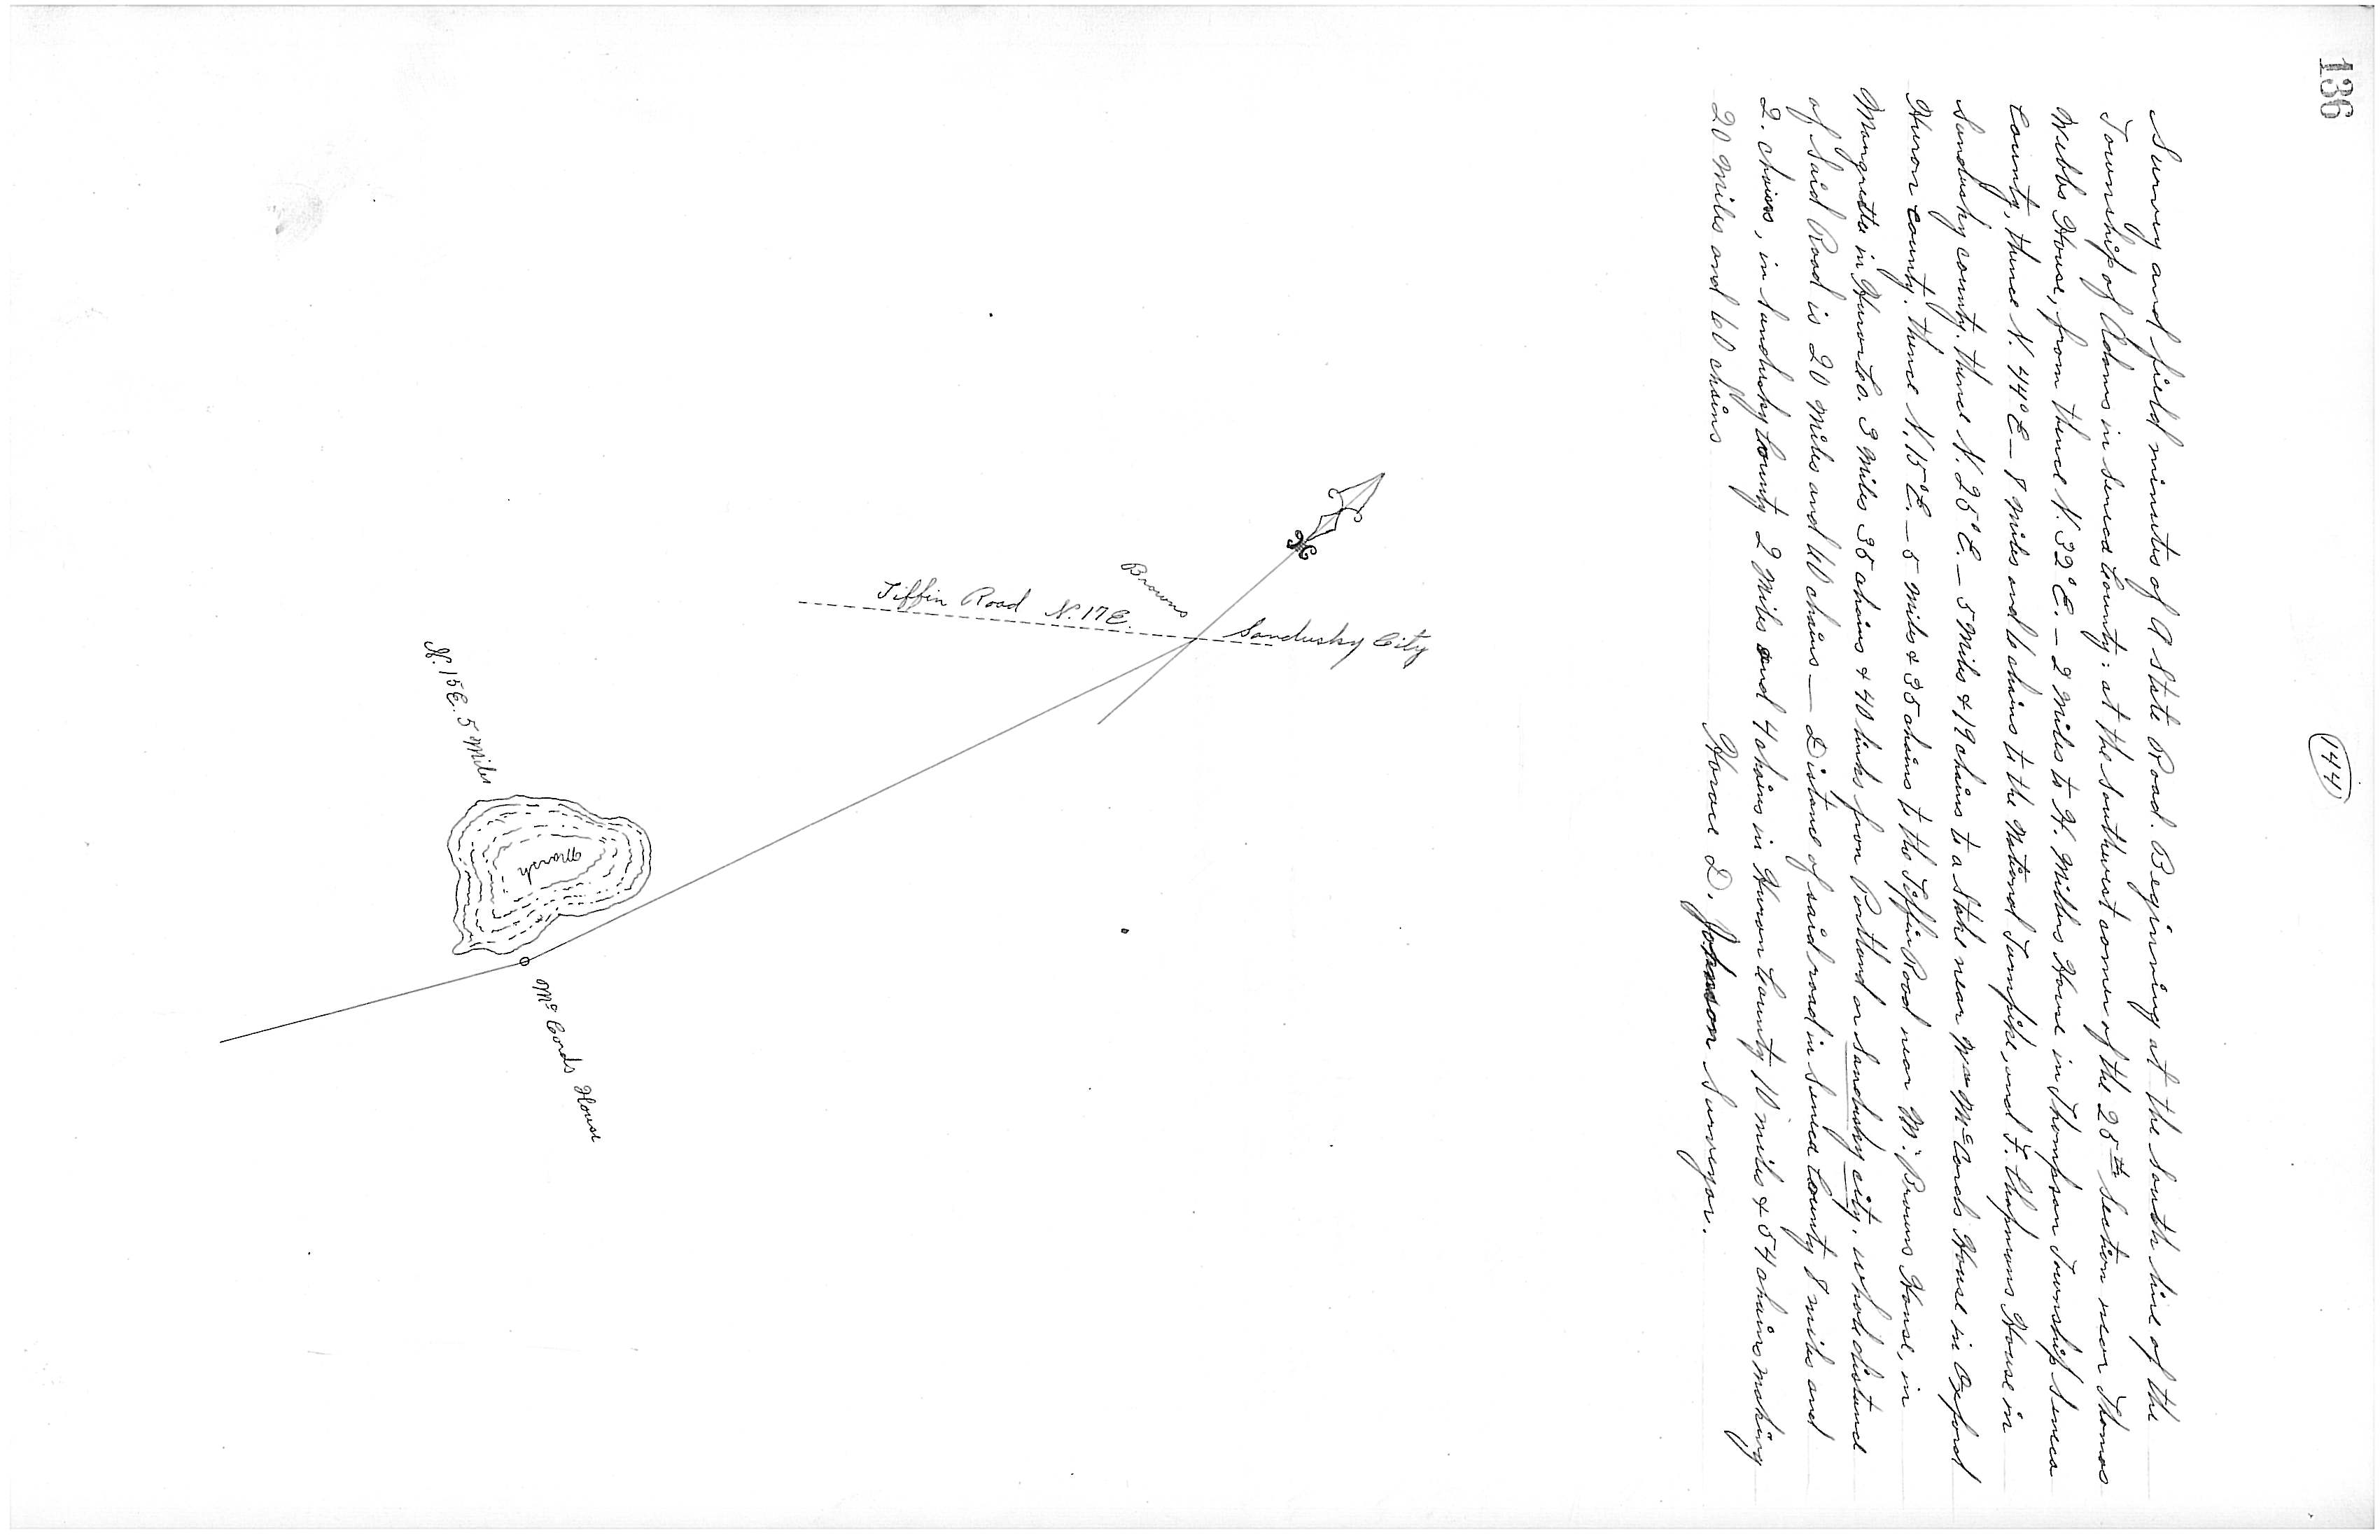 136
(144)
Survey and field minutes of A State Road. Beginning at the South line of the
Township of Adams in Seneca County: at the Southwest corner of the 25th Section near Thomas
Webbs House, from thence N. 32° E. – 2 Miles to H. Millers House in Thompson Township Seneca
County, thence N. 44° E – 8 Miles and 6 chains to the National Turnpike, and F. Chapmans House in
Sandusky county. thence N. 25° E. – 5 Miles & 19 chains to a Stake near Wm McCords House in Oxford
Huron County. thence N. 15° E. – 5 Miles & 35 chains to the Tiffin Road near M. Browns House, in
in Huron Co. 3 Miles 35 chains & 40 links from Portland or Sandusky city. whole distance
of Said Road is 20 Miles and 60 chains — Distance of said road in Seneca County 8 miles and
2. chains, in Sandusky County 2 Miles and 4 chains in Huron County 10 miles & 54 chains making
20 Miles and 60 chains
Horace D. Johnson Surveyor.
Browns
Tiffin Road N. 17 E.
Sandusky City
N. 15 E. 5 Miles
Marsh
Mc Cords House